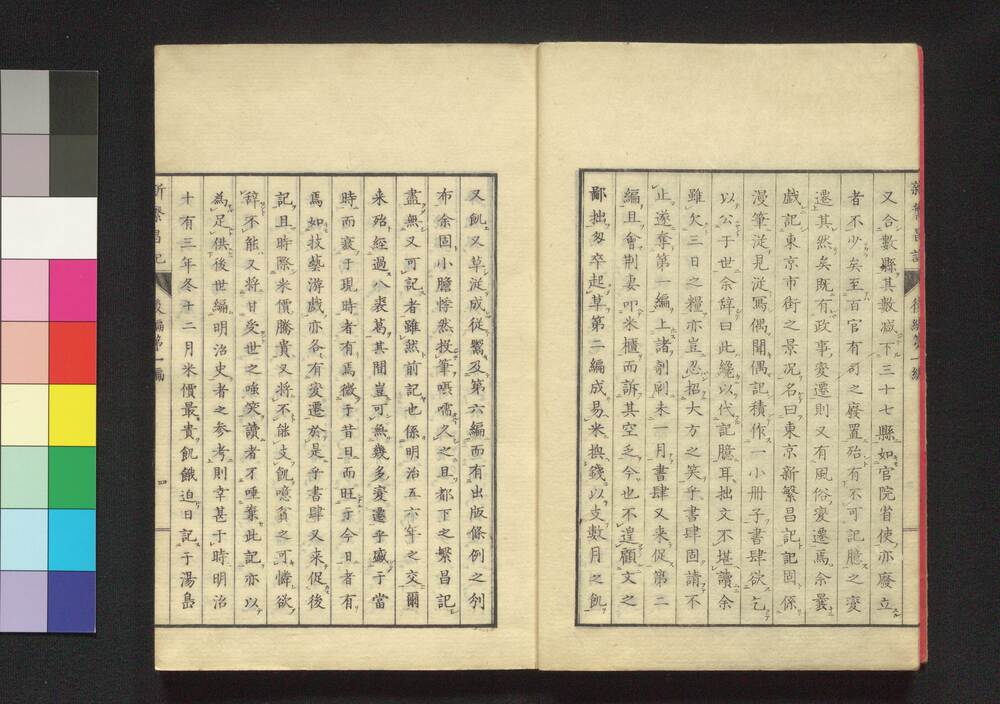 又合數縣其數減下三十七縣如官院省使亦廢立
者不少矣至百官有司之廢置殆有不可記臆之變
遷其然矣既有政事變遷則又有風俗變遷焉余曩
戲記東京市街之景况名曰東京新繁昌記記固係
漫筆従見従寫偶聞偶記積作一小册子書肆欲乞
以公于世余辞曰此纔以代記臆耳拙文不堪讀余
雖欠三日之糧亦豈忍招大方之笑乎書肆固請不
止遂奪第一編上諸剞劂未一月書肆又来促第二
編且會荆妻叩米櫃而訴其空乏今也不遑顧文之
鄙拙匆卒起草第二編成易米與錢以支數月之飢
新繁昌記
後編第一編
又飢又草従成従鬻及第六編而有出版條例之列
布余固小膽悸然投筆囁嚅久之且都下之繁昌記
盡無又可記者雖然前記也係明治五六年之交爾
来殆經過八裘葛其間豈可無幾多變遷乎盛于當
時而衰于現時者有焉微于昔日而旺于今日者有
焉如技藝游戲亦各有變遷於是乎書肆又来促後
記且時際米價騰貴又將不能支飢噫貧之可憐欲
辞不能又將甘受世之嗤笑讀者不唾棄此記亦以
為足供後世編明治史者之参考則幸甚于時明治
十有三年冬十二月米價最貴飢餓迫日記于湯島
新繁昌記
後編第一編
四